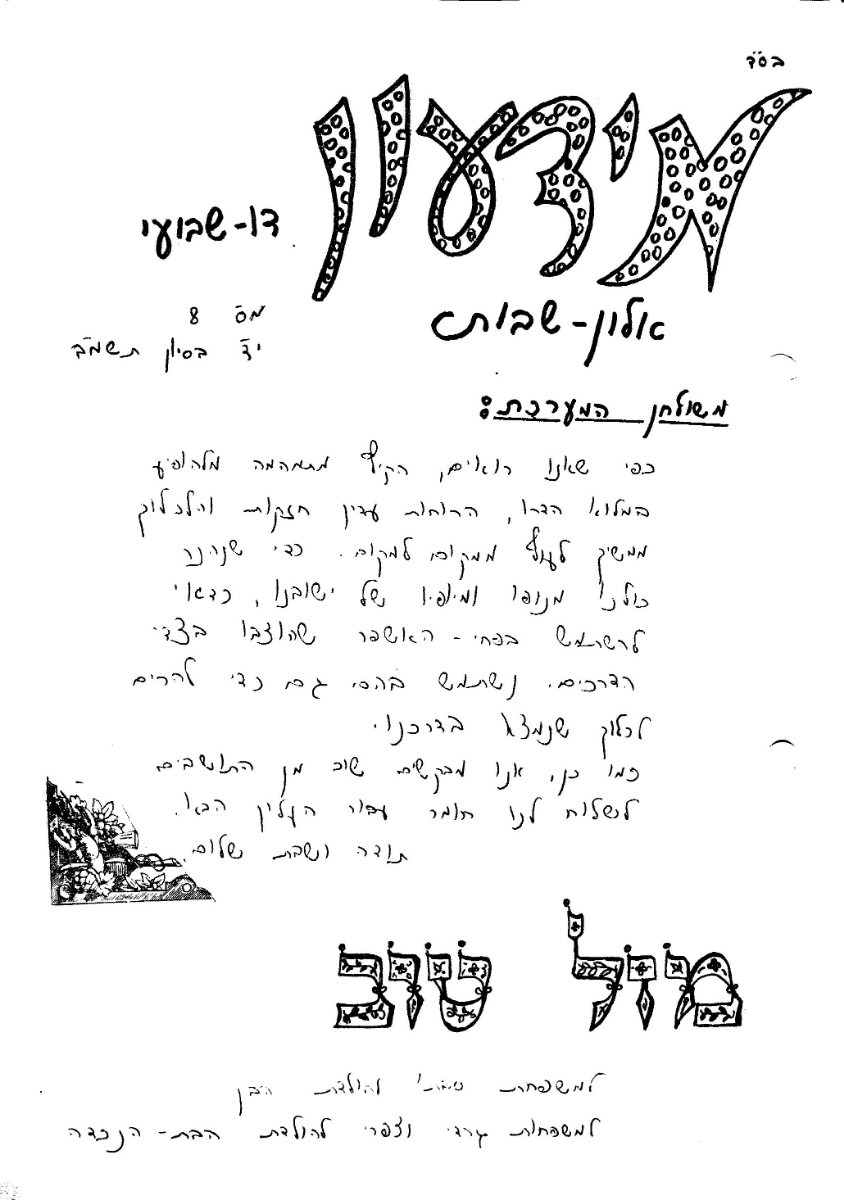 בס"ד
מידעון
דו-שבועי
אלון-שבות
מס' 8
י"ד בסיון תשמ"ב
משולחן המערכת:
כפי שאנו רואים, הקיץ מתמהמה מלהופיע
במלוא הדרו, הרוחות עדין חזקות והלכלוך
ממשיך לעוף ממקום למקום. כדי שנהנה
כולנו מנופו ומיופיו של ישובנו, כדאי
להשתמש בפחי-האשפה שהוצבו בצדי
הדרכים. נשתמש בהם גם כדי להרים
לכלוך שנמצא בדרכנו.
כמו כן, אנו מבקשים שוב מן התושבים
לשלוח לנו חומר עבור העלון הבא.
תודה ושבת שלום.
מזל טוב
למשפחת להולדת הבן
למשפחות גרדי וצפרי להולדת הבת-הנכדה